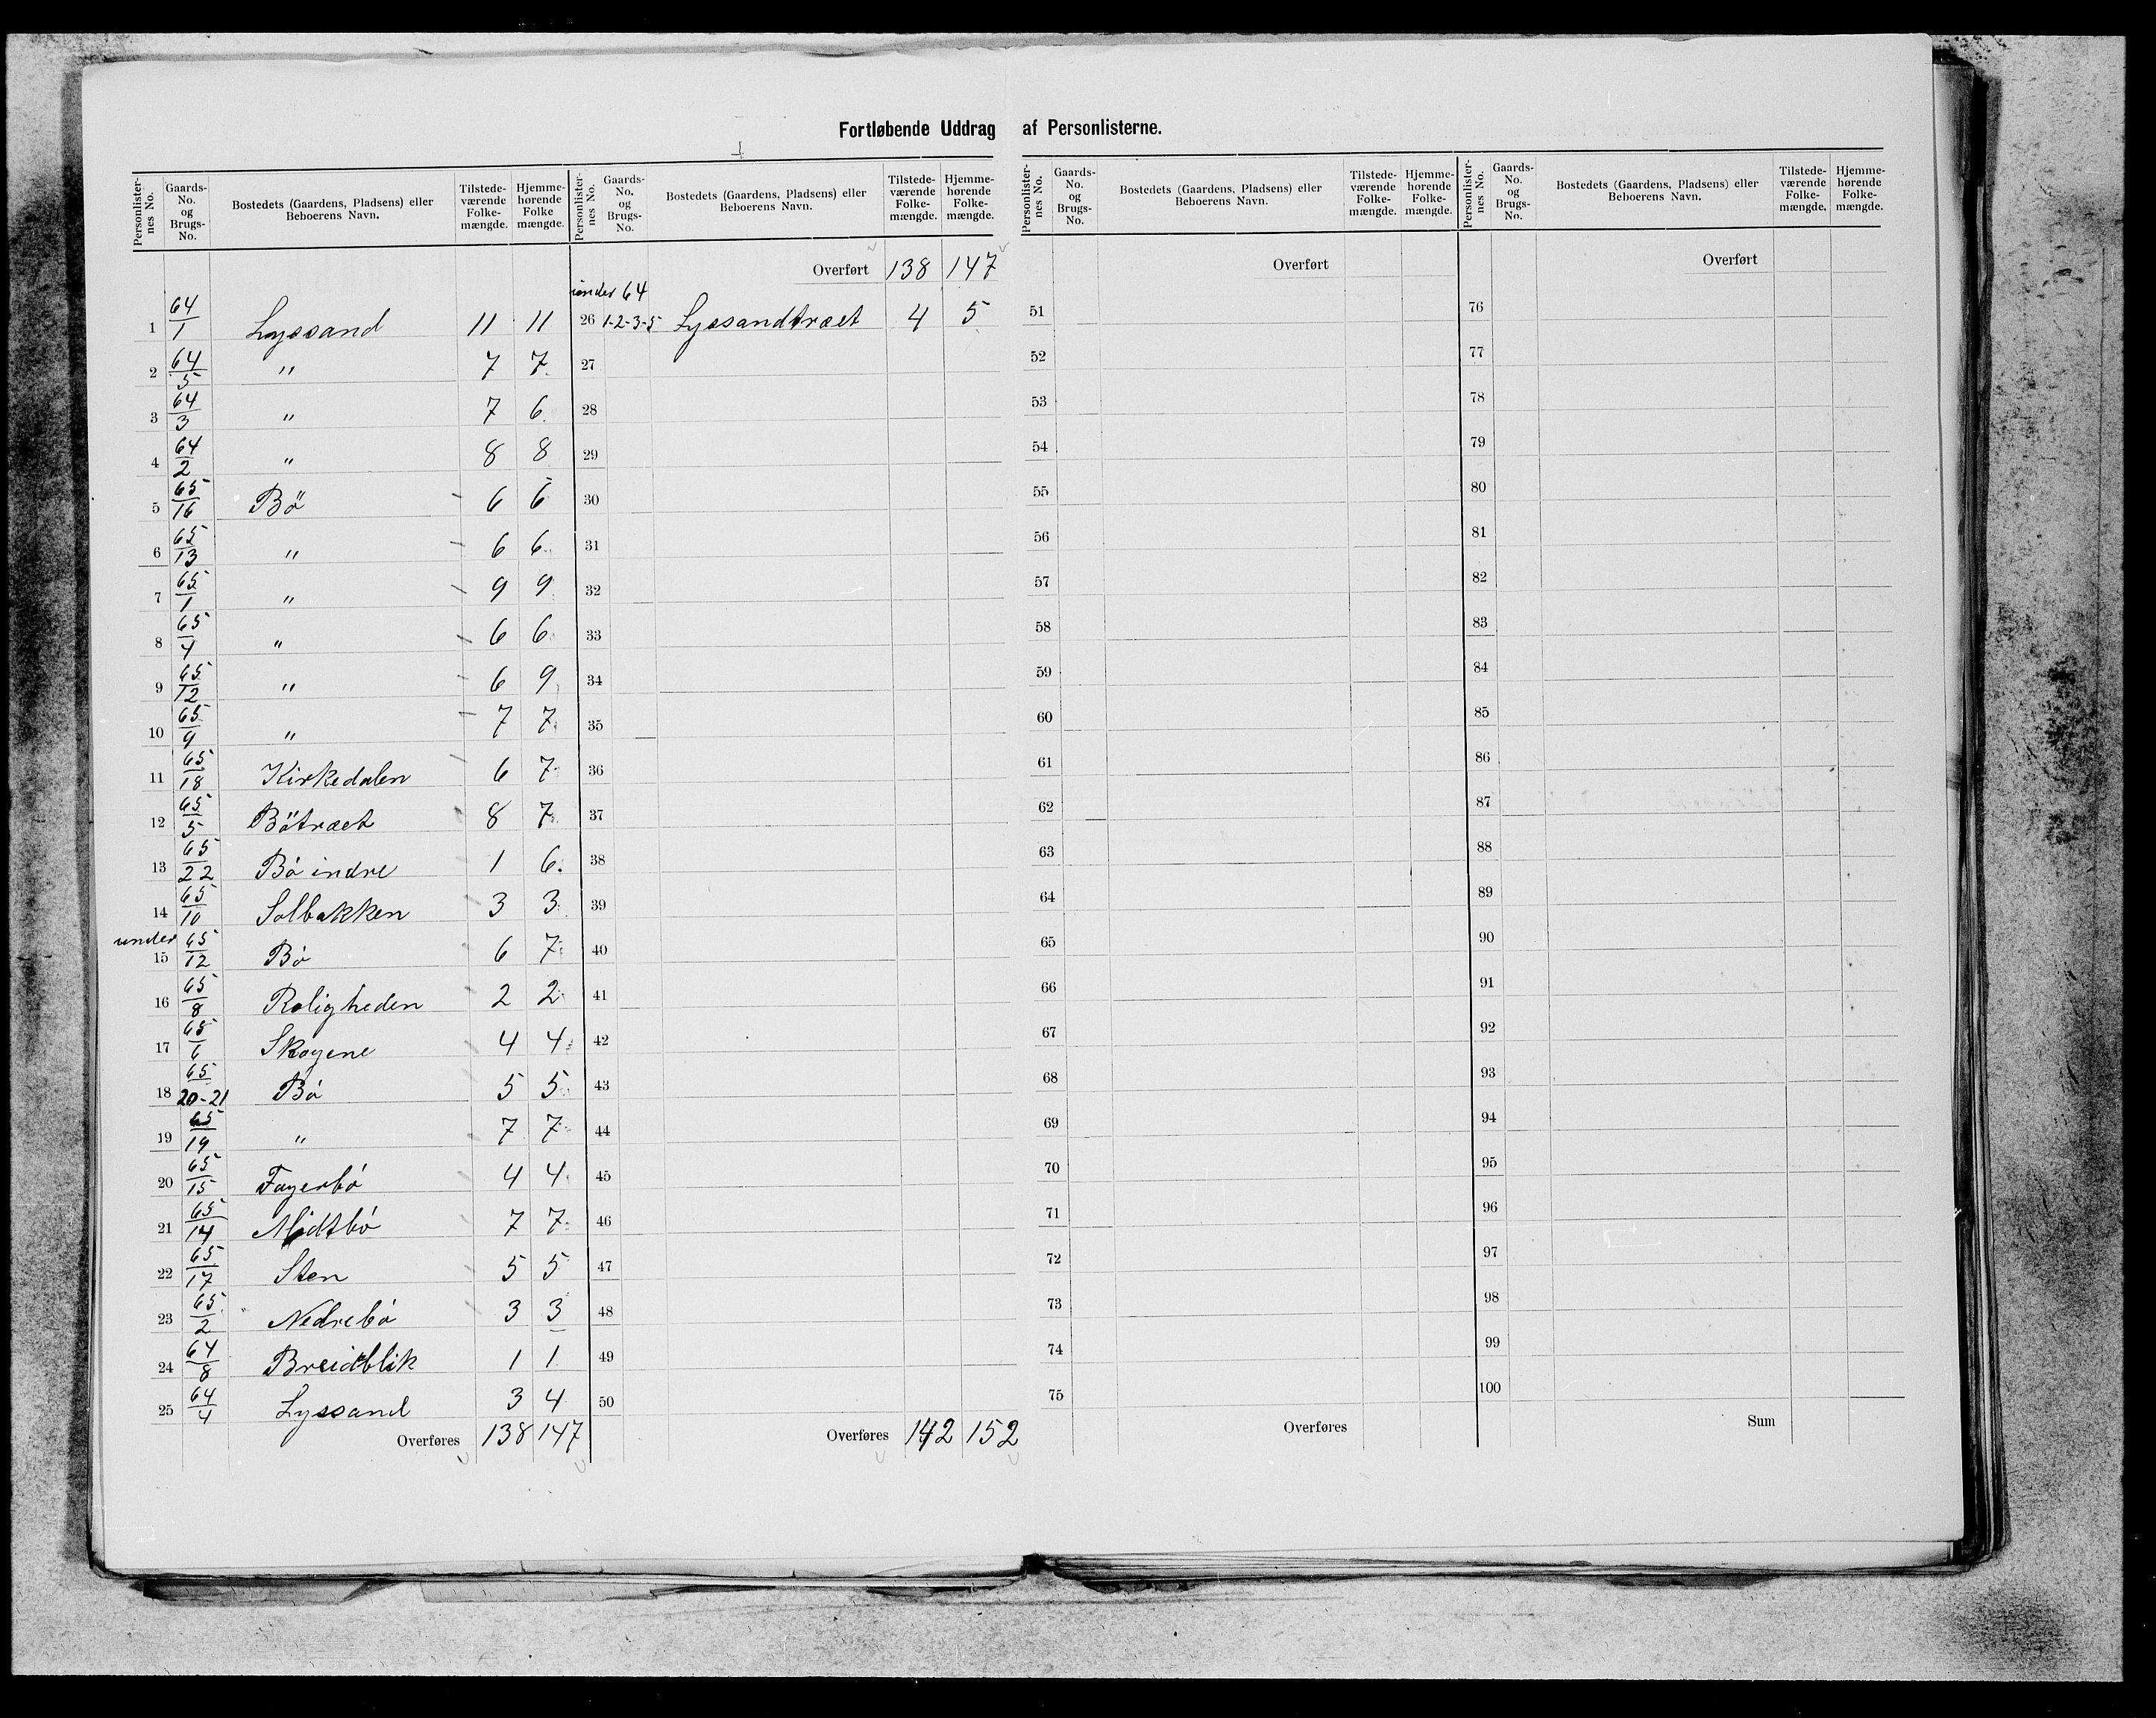 Fortløbende Uddrag af Personlisterne.
Personlisternes No. Gaards-No. og Brugs-No. Bostedets (Gaardens, Pladsens) eller Beboerens Navn. Tilstedeværende Folkemængde. Hjemmehørende Folke mængde.
1 64/1 Lyssand 11 11
2 64/5 " 7 7
3 64/3 " 7 6
4 64/2 " 8 8
5 65/16 Bö 6 6
6 65/13 " 6 6
7 65/1 " 9 9
8 65/4 " 6 6
9 65/12 " 6 9
10 65/9 " 7 7
11 65/18 Kirkedalen 6 7
12 65/5 Bötræet 8 7
13 65/22 Bø indre 1 6
14 65/10 Solbakken 3 3
15 under 65/12 Bø 6 7
16 65/8 Roligheden 2 2
17 65/6 Skogene 4 4
18 65/20-21 Bø 5 5
19 65/19 " 7 7
20 65/15 Fagerbø 4 4
21 65/14 Midtbø 7 7
22 65/17 Sten 5 5
23 65/2 " Nedrebø 3 3
24 64/8 Breidblik 1 1
25 64/4 Lyssand 3 4
Overføres 138 147
Personlisternes No. Gaards-No. og Brugs-No. Bostedets (Gaardens, Pladsens) eller Beboerens Navn. Tilstedeværende Folkemængde. Hjemmehørende Folkemængde.
Overført 138 147
under 64
26 1-2-3-5 Lyssandtræet 4 5
27
28
29
30
31
32
33
34
35
36
37
38
39
40
41
42
43
44
45
46
47
48
49
50
Overføres 142 152
Personlisternes No. Gaards-No. og Brugs-No. Bostedets (Gaardens, Pladsens) eller Beboerens Navn. Tilstedeværende Folkemængde. Hjemmehørende Folkemængde.
Overført
51
52
53
54
55
56
57
58
59
60
61
62
63
64
65
66
67
68
69
70
71
72
73
74
75
Overføres
Personlisternes No. Gaards-No. og Brugs-No. Bostedets (Gaardens, Pladsens) eller Beboerens Navn. Tilstedeværende Folkemængde. Hjemmehørende Folkemængde.
Overført
76
77
78
79
80
81
82
83
84
85
86
87
88
89
90
91
92
93
94
95
96
97
98
99
100
Sum